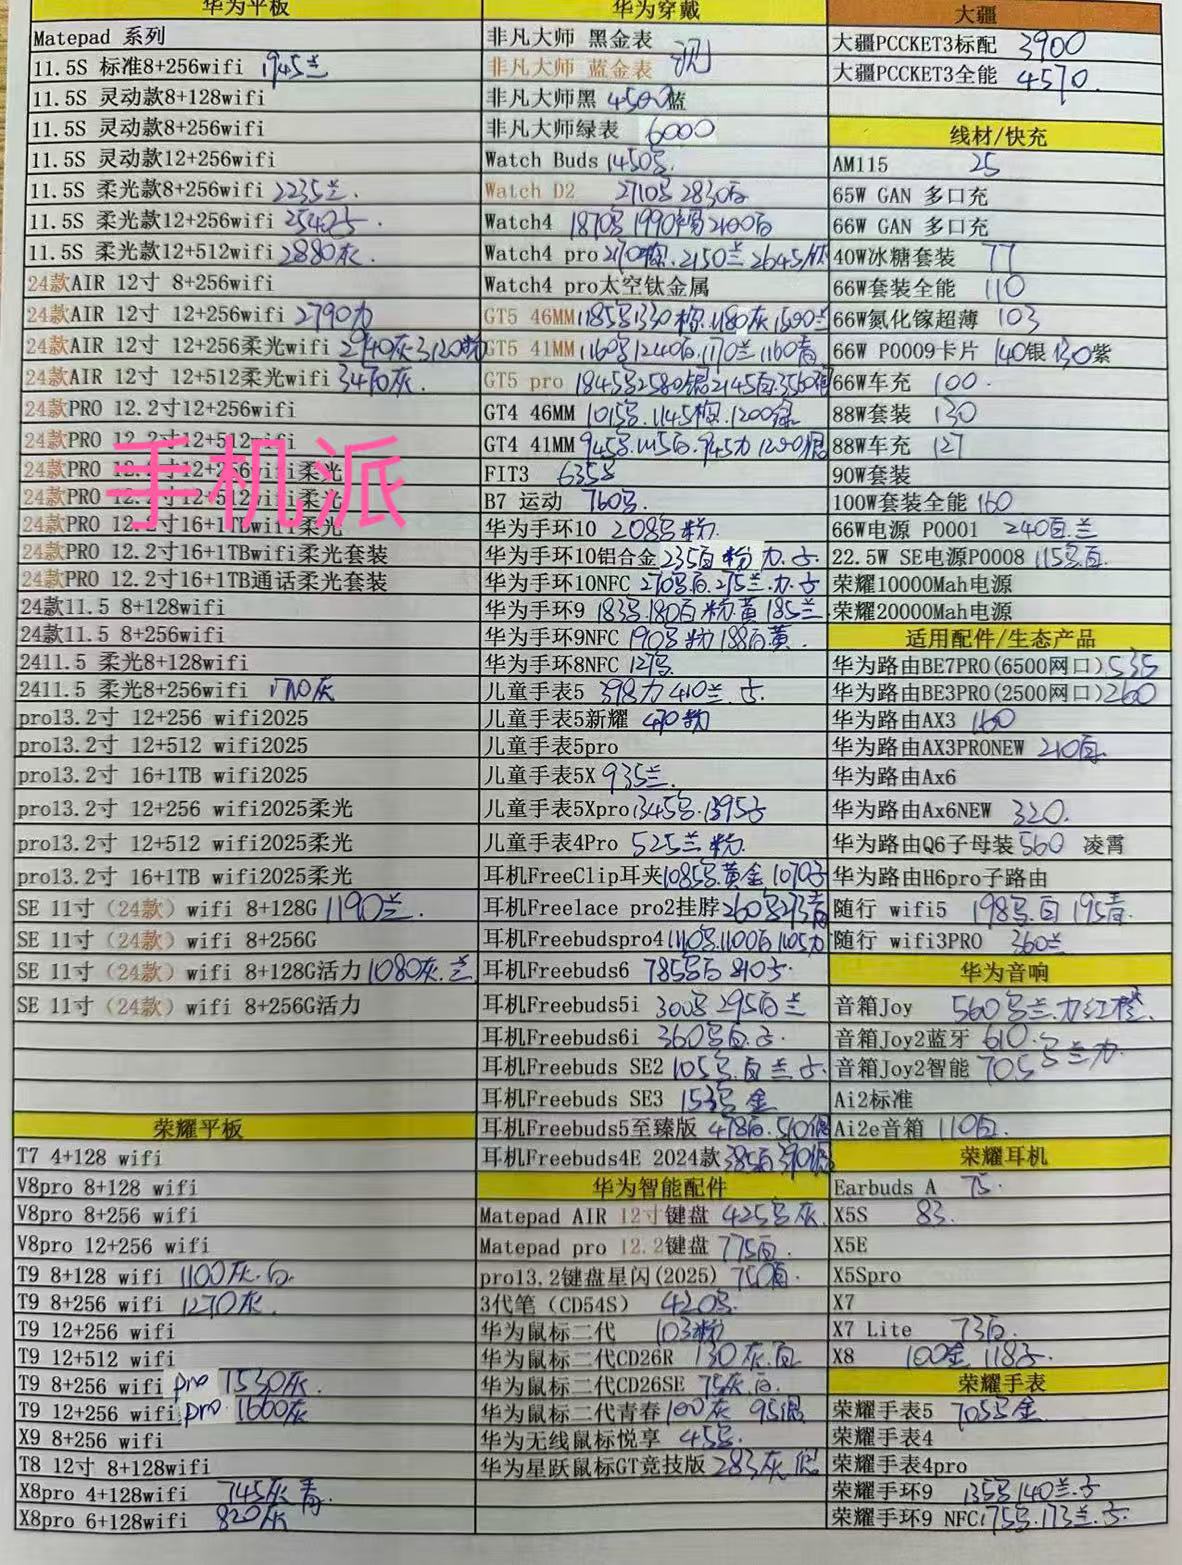 华为平板
Matepad 系列
11.5S 标准8+256wifi 1945兰
11.5S 灵动款8+128wifi
11.5S 灵动款8+256wifi
11.5S 灵动款12+256wifi
11.5S 柔光款8+256wifi 2235兰.
11.5S 柔光款12+256wifi 2540
11.5S 柔光款12+512wifi 2880灰.
24款AIR 12寸 8+256wifi
24款AIR 12寸 12+256wifi 2790力
24款AIR 12寸 12+256柔光wifi 2940灰 3120粉
24款AIR 12寸 12+512柔光wifi 3470灰.
24款PRO 12.2寸12+256wifi
24款PRO 12.2寸12+512wifi
24款PRO 12.2寸12+256wifi柔光
24款PRO 12.2寸12+512wifi柔光
手机派
24款PRO 12.2寸16+1TBwifi柔光
24款PRO 12.2寸16+1TBwifi柔光套装
24款PRO 12.2寸16+1TB通话柔光套装
24款11.5 8+128wifi
24款11.5 8+256wifi
2411.5 柔光8+128wifi
2411.5 柔光8+256wifi 灰
pro13.2寸 12+256 wifi2025
pro13.2寸 12+512 wifi2025
pro13.2寸 16+1TB wifi2025
pro13.2寸 12+256 wifi2025柔光
pro13.2寸 12+512 wifi2025柔光
pro13.2寸 16+1TB wifi2025柔光
SE 11寸（24款）wifi 8+128G 1190兰.
SE 11寸（24款）wifi 8+256G
SE 11寸（24款）wifi 8+128G活力 1080灰.兰
SE 11寸（24款）wifi 8+256G活力
荣耀平板
T7 4+128 wifi
V8pro 8+128 wifi
V8pro 8+256 wifi
V8pro 12+256 wifi
T9 8+128 wifi 1100灰.白
T9 8+256 wifi 1270灰.
T9 12+256 wifi
T9 12+512 wifi
T9 8+256 wifi pro 1530灰.
T9 12+256 wifi pro 1660灰
X9 8+256 wifi
T8 12寸 8+128wifi
X8pro 4+128wifi 745灰 青.
X8pro 6+128wifi 820灰
华为穿戴
非凡大师 黑金表
非凡大师 蓝金表
非凡大师黑 4500蓝
非凡大师绿表 6000
Watch Buds 1450
Watch D2 2710 2830白
Watch4 1870 1990棕 2100白
Watch4 pro 棕.2150兰 2645
Watch4 pro太空钛金属
GT5 46MM 1185 1330棕.1180灰 1500兰
GT5 41MM 1160 1240白.1170兰 1160青
GT5 pro 1845 2580银 2145白
GT4 46MM 1015 1145棕.1200绿
GT4 41MM 945 白.945力 1200银
FIT3 635
B7 运动 760
华为手环10 208 粉.
华为手环10铝合金 235白 粉 力.
华为手环10NFC 270 白.275兰.力.
华为手环9 183 180白 粉 黄 185兰
华为手环9NFC 190 粉 188白黄.
华为手环8NFC 127
儿童手表5 398力 410兰.
儿童手表5新耀 470粉
儿童手表5pro
儿童手表5X 935兰.
儿童手表5Xpro 1345 1395
儿童手表4Pro 525兰 粉.
耳机FreeClip耳夹 1085 黄金 1070
耳机Freelace pro2挂脖 260 青
耳机Freebudspro4 1110 1100白 1105力
耳机Freebuds6 785 白 810
耳机Freebuds5i 300 295白 兰
耳机Freebuds6i 360 白.
耳机Freebuds SE2 105 白 兰
耳机Freebuds SE3 153 金
耳机Freebuds5至臻版 478白.510银
耳机Freebuds4E 2024款 385白 390银
华为智能配件
Matepad AIR 12寸键盘 425 灰.
Matepad pro 12.2键盘 775白.
pro13.2键盘星闪(2025) 750白.
3代笔（CD54S） 420
华为鼠标二代 103粉
华为鼠标二代CD26R 130灰.白
华为鼠标二代CD26SE 75灰.白.
华为鼠标二代青春 100灰 95银
华为无线鼠标悦享 45
华为星跃鼠标GT竞技版 283灰 银
大疆
大疆PCCKET3标配 3900
大疆PCCKET3全能 4570.
线材/快充
AM115 25
65W GAN 多口充
66W GAN 多口充
40W冰糖套装 77
66W套装全能 110
66W氮化镓超薄 103
66W P0009卡片 140银 130紫
66W车充 100.
88W套装 130
88W车充 127
90W套装
100W套装全能 160
66W电源 P0001 240白.兰
22.5W SE电源P0008 115 白.
荣耀10000Mah电源
荣耀20000Mah电源
适用配件/生态产品
华为路由BE7PRO(6500网口) 535
华为路由BE3PRO(2500网口) 260
华为路由AX3 160
华为路由AX3PRONEW 210白.
华为路由Ax6
华为路由Ax6NEW 320.
华为路由Q6子母装 560 凌霄
华为路由H6pro子路由
随行 wifi5 198 白 195青.
随行 wifi3PRO 360兰
华为音响
音箱Joy 560 兰.力 红 橙.
音箱Joy2蓝牙 610.
音箱Joy2智能 705 兰力.
Ai2标准
Ai2e音箱 110白.
荣耀耳机
Earbuds A 75.
X5S 83.
X5E
X5Spro
X7
X7 Lite 73白.
X8 100金 118
荣耀手表
荣耀手表5 705 金
荣耀手表4
荣耀手表4pro
荣耀手环9 135 140兰.
荣耀手环9 NFC 175 173兰.